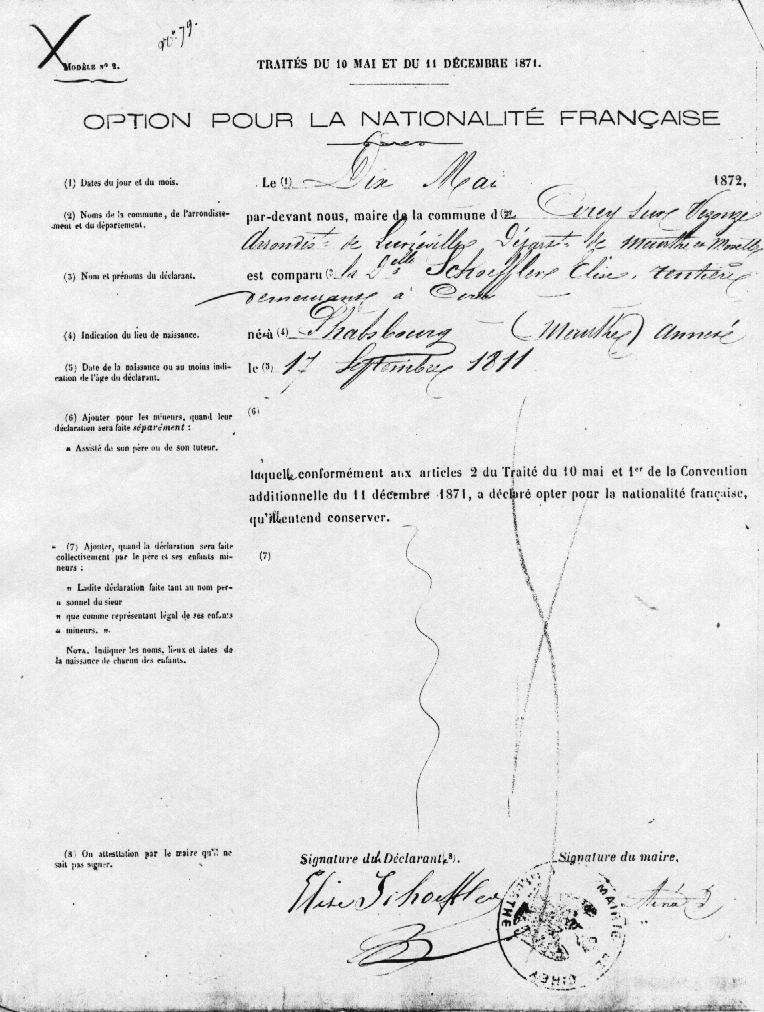 n° 79.
Modèle n° 2.
TRAITÉS DU 10 MAI ET DU 11 DÉCEMBRE 1871.
OPTION POUR LA NATIONALITÉ FRANÇAISE
(1) Dates du jour et du mois.
Le (1) Dix Mai 1872,
(2) Noms de la commune, de l'arrondissement et du département.
par-devant nous, maire de la commune de Cirey sur Vezouze
Arrondist de Lunéville Départt de Meurthe et Moselle
(3) Nom et prénoms du déclarant.
est comparu (3) la Delle Schoeffler Elise, rentière
demeurant à Cirey
(4) Indication du lieu de naissance.
né à (4) Phalsbourg (Meurthe) annexé
(5) Date de la naissance ou au moins indication de l'âge du déclarant.
le (5) 17 Septembre 1811
(6) Ajouter pour les mineurs, quand leur déclaration sera faite séparément :
(6)
« Assisté de son père ou de son tuteur.
laquelle conformément aux articles 2 du Traité du 10 mai et 1er de la Convention
additionnelle du 11 décembre 1871, a déclaré opter pour la nationalité française,
qu'elle entend conserver.
(7) Ajouter, quand la déclaration sera faite
collectivement par le père et ses enfants mineurs :
(7)
« Ladite déclaration faite tant au nom per-
« sonnel du sieur
« que comme représentant légal de ses enfants
« mineurs. ».
Nota. Indiquer les noms, lieux et dates de
la naissance de chacun des enfants.
(8) Ou attestation par le maire qu'il ne
sait pas signer.
Signature du Déclarant (8).
Signature du maire.
Elise Schoeffler
MAIRIE DE CIREY
MEURTHE